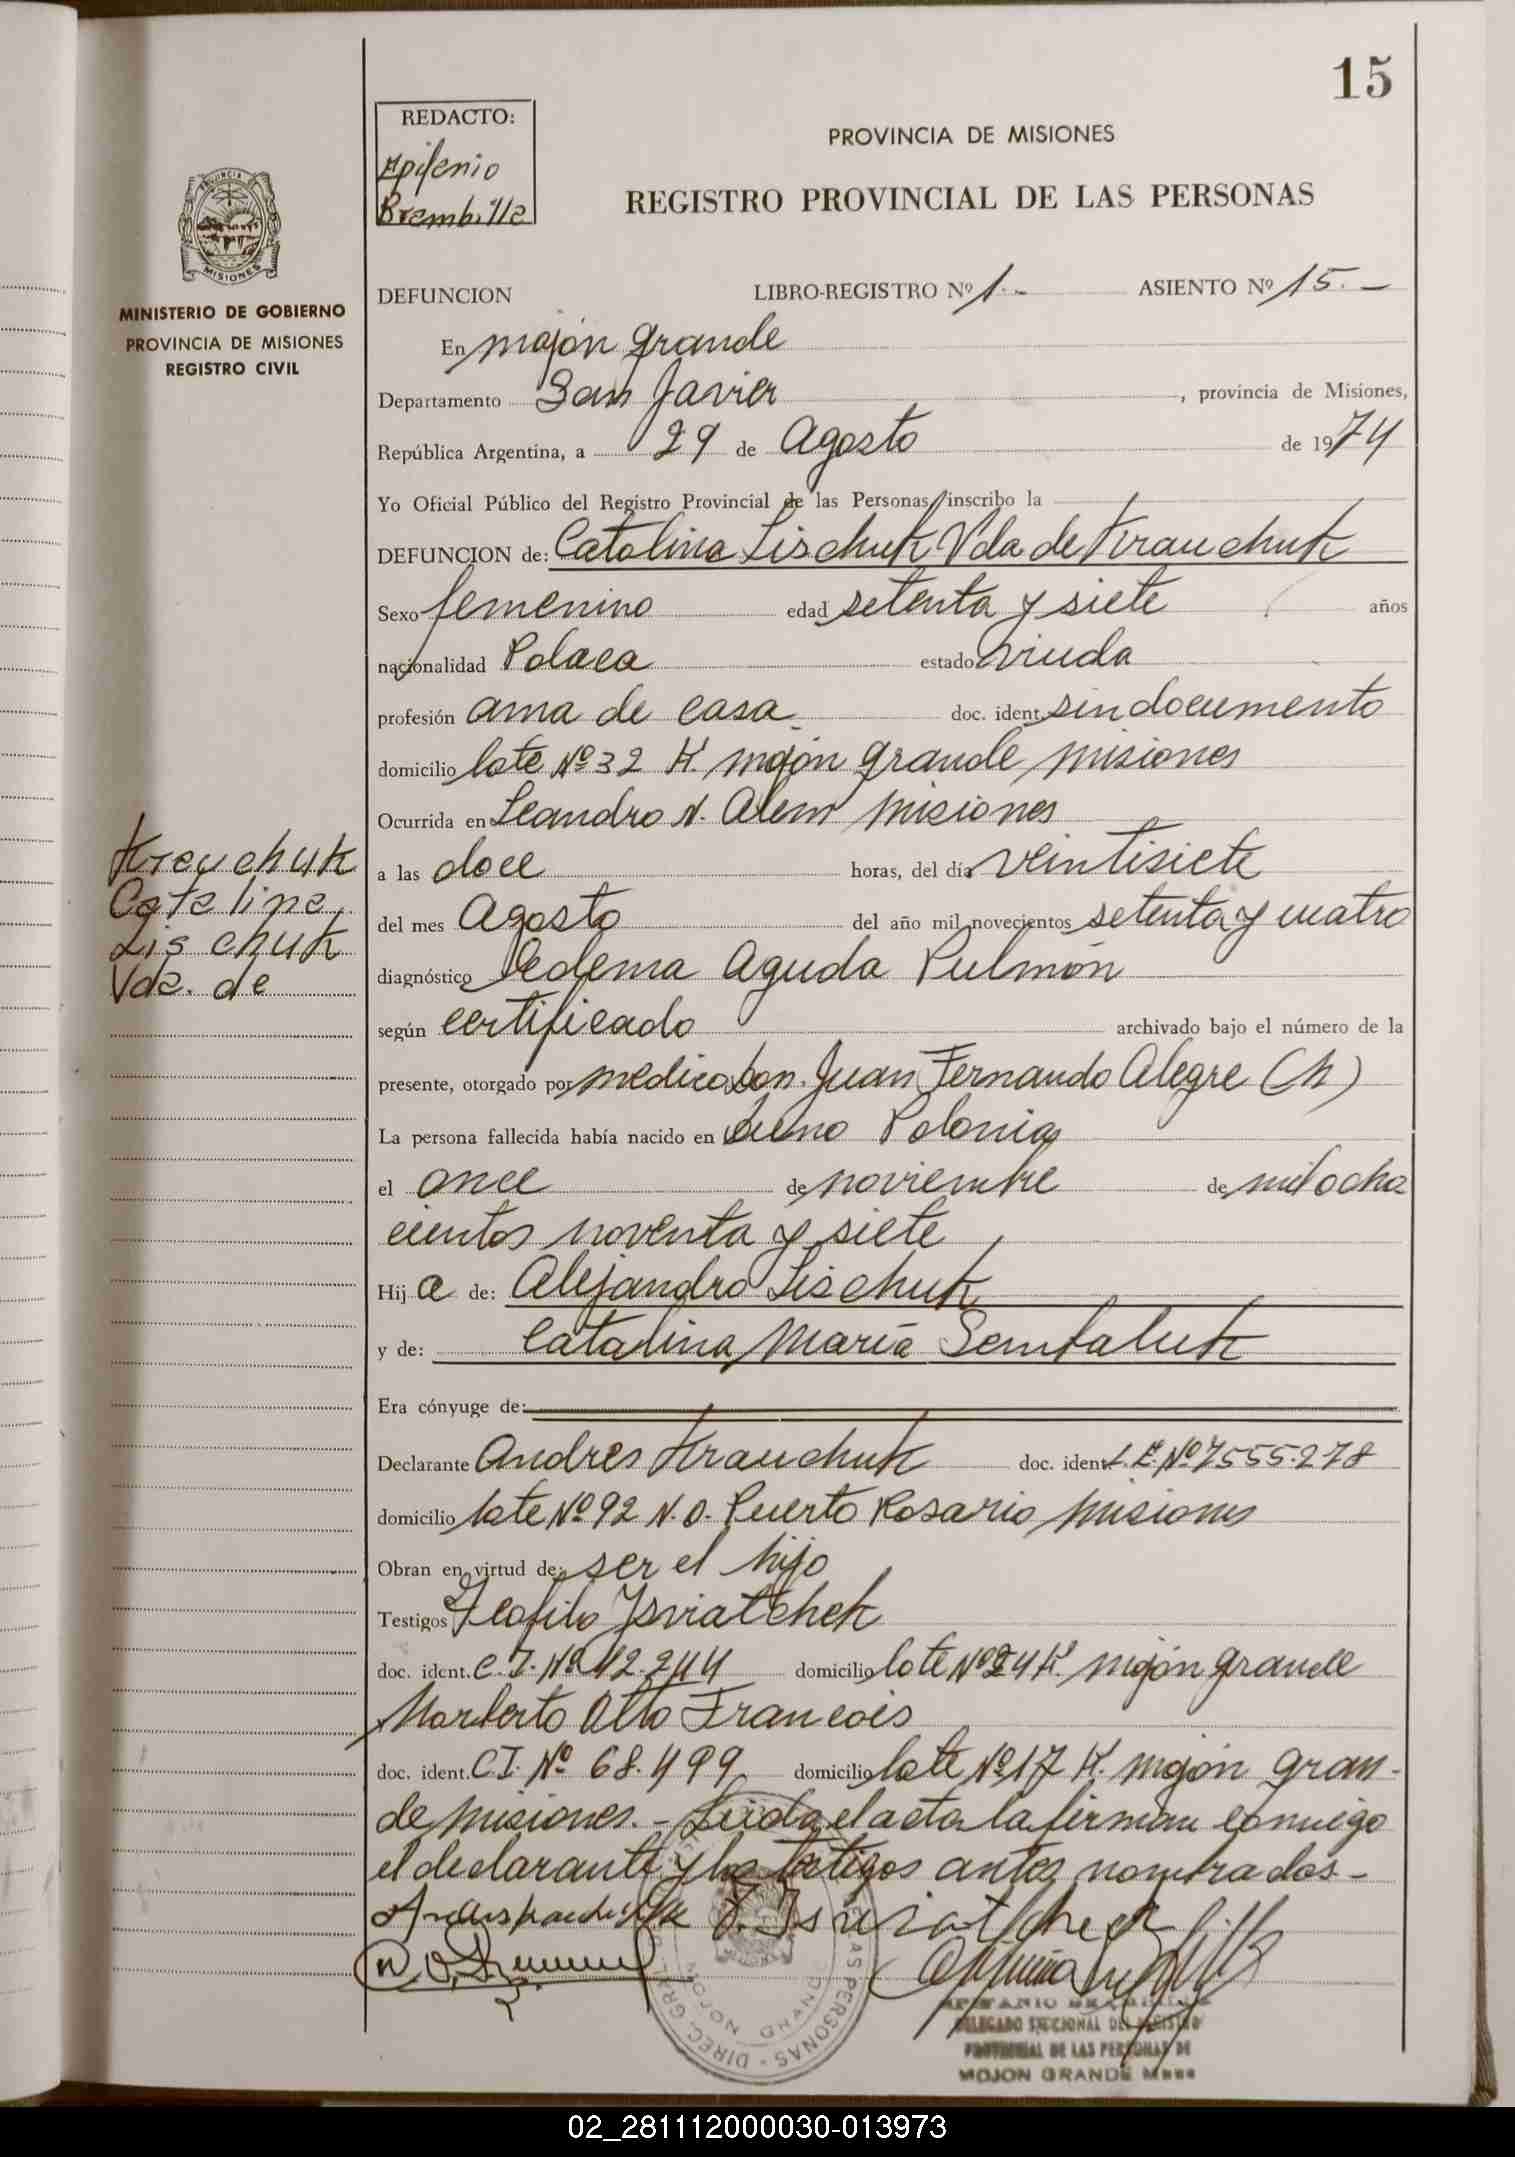 15
REDACTO:
Epifenio
Brembilla
PROVINCIA DE MISIONES
REGISTRO PROVINCIAL DE LAS PERSONAS
MINISTERIO DE GOBIERNO
PROVINCIA DE MISIONES
REGISTRO CIVIL
DEFUNCION LIBRO-REGISTRO Nº 1.- ASIENTO Nº 15.-
En mojón grande
Departamento San Javier, provincia de Misiones,
República Argentina, a 29 de Agosto de 1974
Yo Oficial Público del Registro Provincial de las Personas, inscribo la
DEFUNCION de: Catalina Lischuk Vda de Krauchuk
Sexo femenino edad setenta y siete años
nacionalidad Polaca estado viuda
profesión ama de casa doc. ident. sin documento
domicilio lote Nº 32 K. mojón grande misiones
Ocurrida en Leandro N. Alem misiones
Krauchuk
Catalina
Lischuk
Vda. de
a las doce horas, del día veintisiete
del mes Agosto del año mil novecientos setenta y cuatro
diagnóstico Oedema Aguda Pulmón
según certificado archivado bajo el número de la
presente, otorgado por medico Don. Juan Fernando Alegre (h)
La persona fallecida había nacido en Polonia
el once de noviembre de mil ocho
cientos noventa y siete
Hij a de: Alejandro Lischuk
y de: Catalina María Semtaluk
Era cónyuge de:
Declarante Andres Krauchuk doc. ident. L.E. Nº 7555.278
domicilio lote Nº 92 N.O. Puerto Rosario misiones
Obran en virtud de: ser el hijo
Testigos Teofilo Isviatchek
doc. ident. C.I. Nº 42.244 domicilio lote Nº 24 K. mojón grande
Norberto Otto Francois
doc. ident. C.I. Nº 68.499 domicilio lote Nº 17 K. mojón gran-
de misiones.- Leida el acta la firman conmigo
el declarante y los testigos antes nombrados-
T. Isviatchek
DIREC. GRAL. PERSONAS
MOJON GRANDE
DELEGADO SECCIONAL DEL REGISTRO
PROVINCIAL DE LAS PERSONAS DE
MOJON GRANDE
02_281112000030-013973